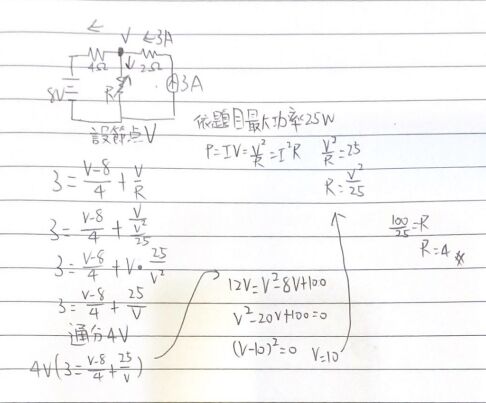 V ←3A
4Ω 2Ω
8V R 3A
設節点V
依題目最大功率25W
P=IV=V²/R=I²R V²/R=25
R=V²/25
3=(V-8)/4+V/R
3=(V-8)/4+V/(V²/25)
3=(V-8)/4+V·25/V²
3=(V-8)/4+25/V
通分4V
4V(3=(V-8)/4+25/V)
12V=V²-8V+100
V²-20V+100=0
(V-10)²=0 V=10
100/25=R
R=4